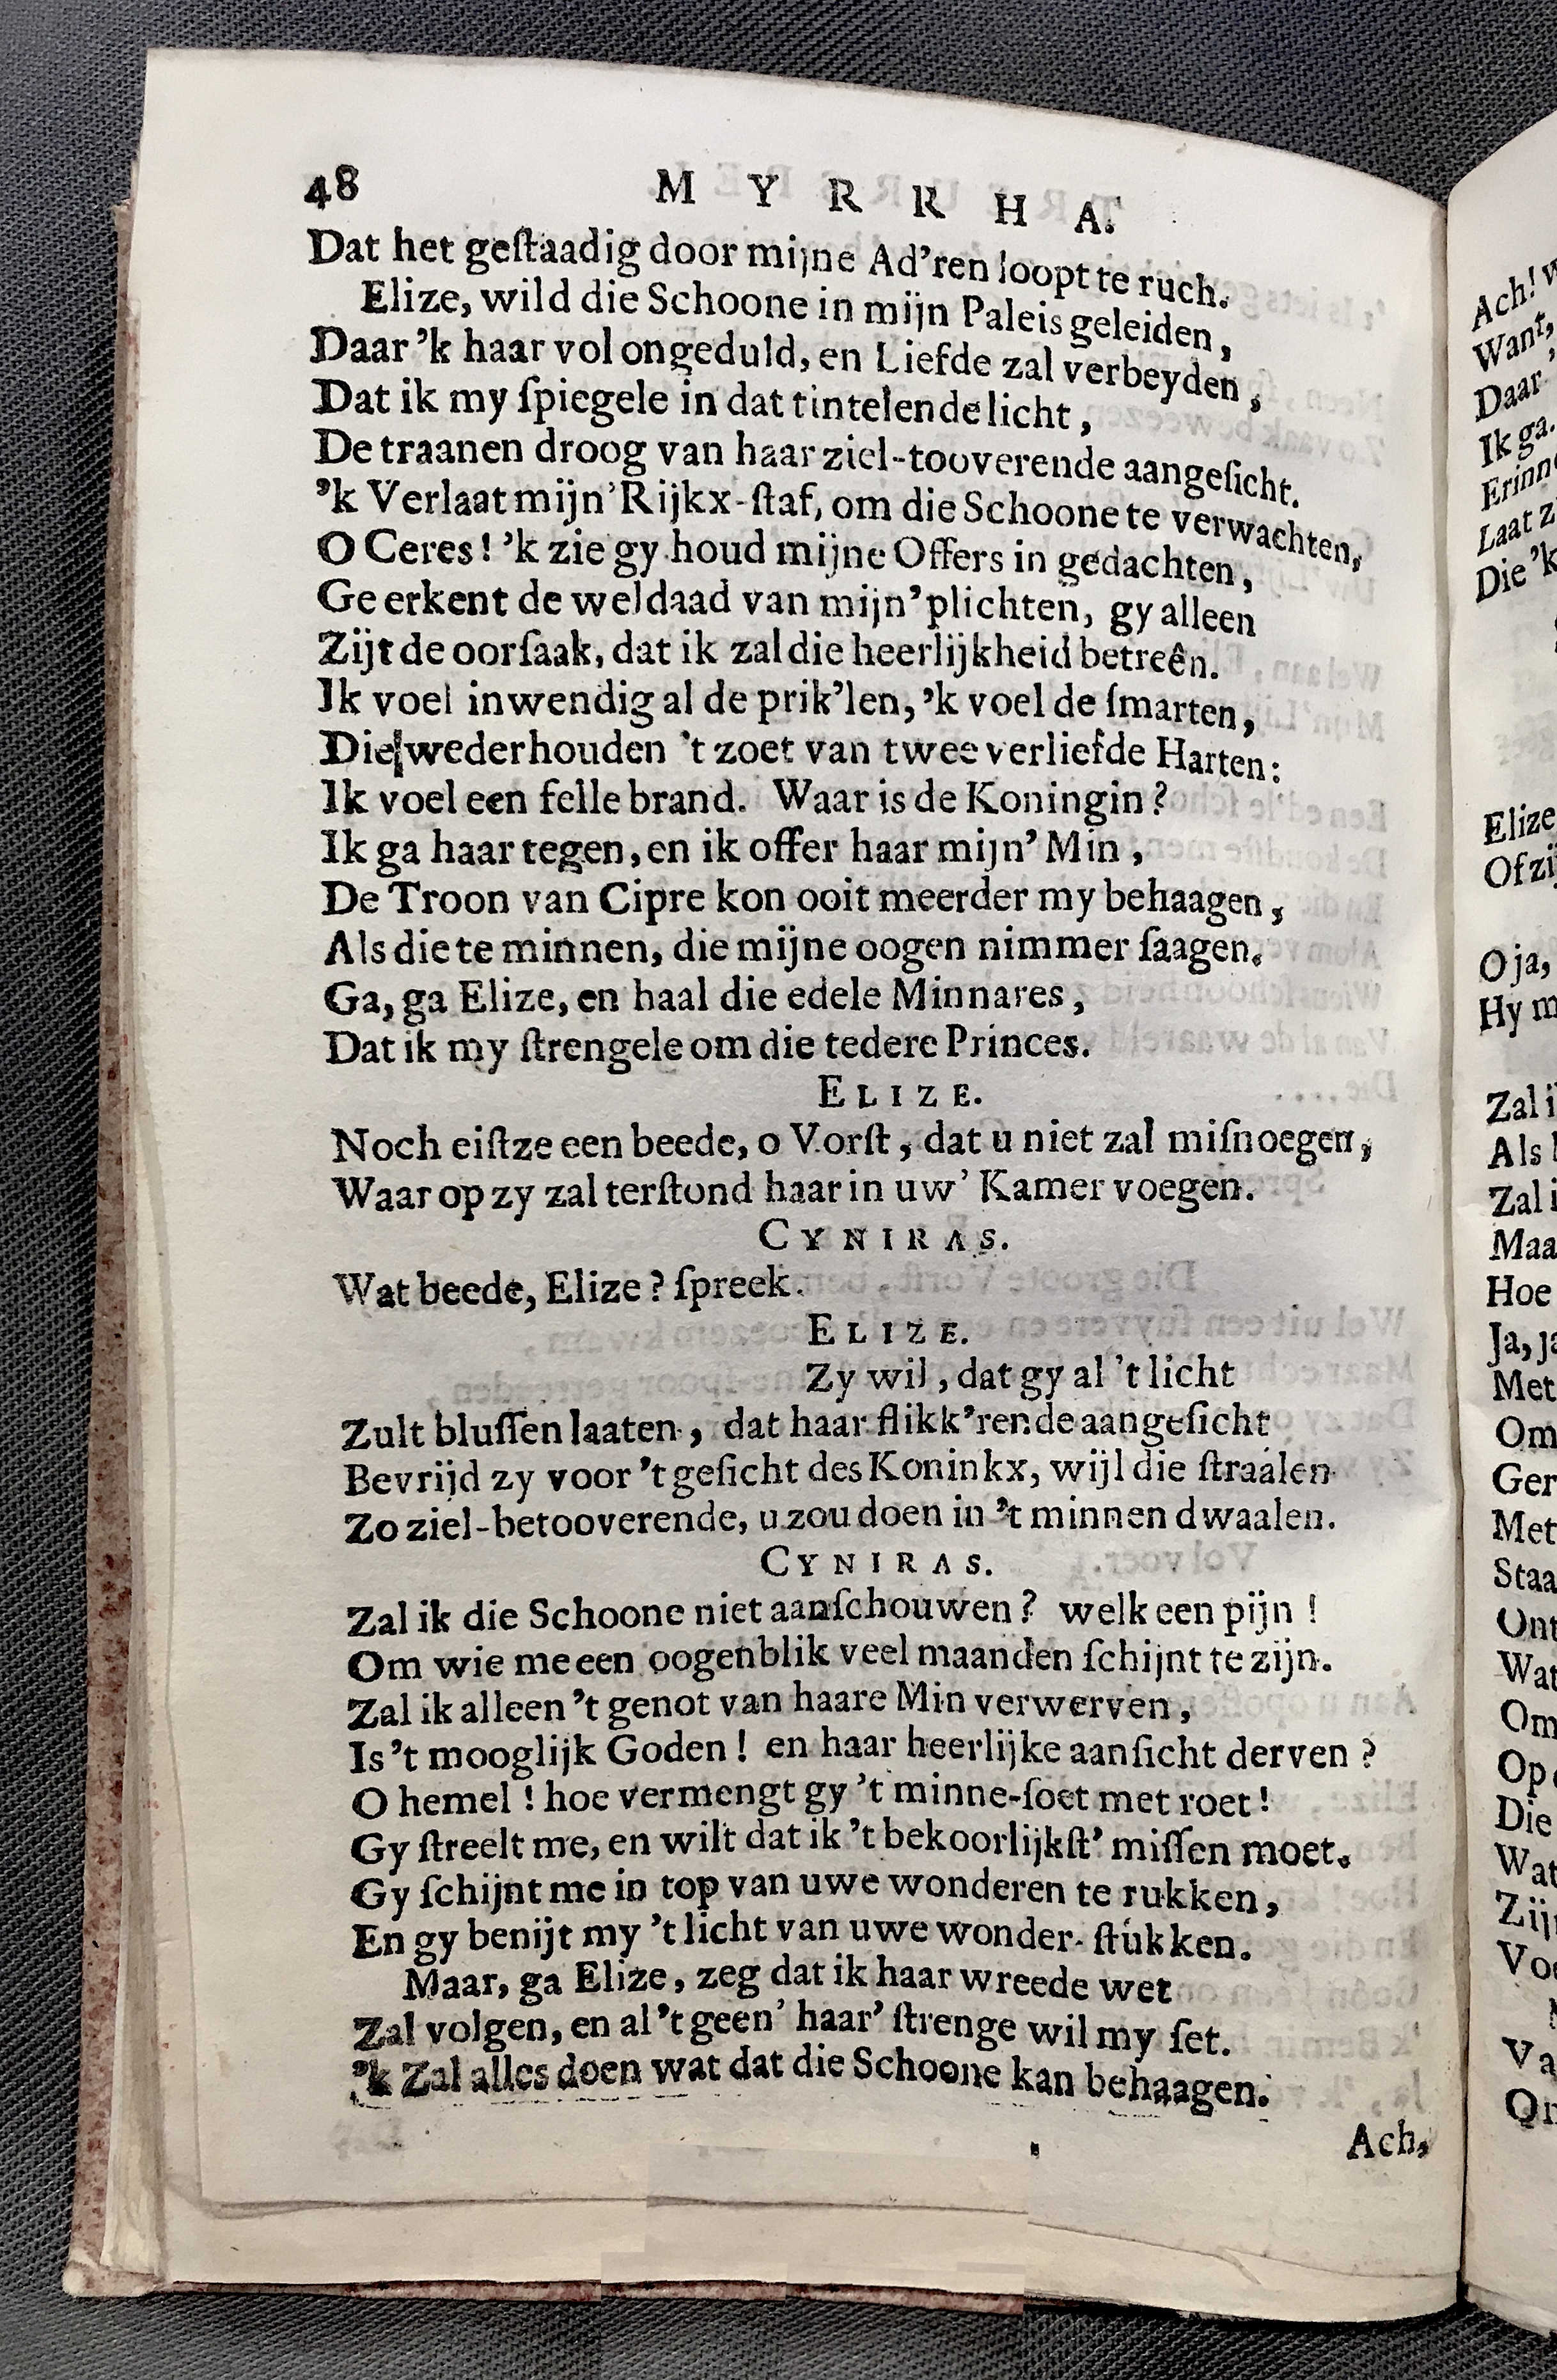 48 MYRRHA.
Dat het geſtaadig door mijne Ad’ren loopt te ruch.
Elize, wild die Schoone in mijn Paleis geleiden,
Daar ’k haar vol ongeduld, en Liefde zal verbeyden,
Dat ik my ſpiegele in dat tintelende licht,
De traanen droog van haar ziel-tooverende aangeſicht.
’k Verlaat mijn’ Rijkx-ſtaf, om die Schoone te verwachten,
O Ceres! ’k zie gy houd mijne Offers in gedachten,
Ge erkent de weldaad van mijn’ plichten, gy alleen
Zijt de oorſaak, dat ik zal die heerlijkheid betreên.
Ik voel inwendig al de prik’len, ’k voel de ſmarten,
Die wederhouden ’t zoet van twee verliefde Harten:
Ik voel een felle brand. Waar is de Koningin?
Ik ga haar tegen, en ik offer haar mijn’ Min,
De Troon van Cipre kon ooit meerder my behaagen,
Als die te minnen, die mijne oogen nimmer ſaagen.
Ga, ga Elize, en haal die edele Minnares,
Dat ik my ſtrengele om die tedere Princes.
ELIZE.
Noch eiſtze een beede, o Vorſt, dat u niet zal miſnoegen,
Waar op zy zal terſtond haar in uw’ Kamer voegen.
CYNIRAS.
Wat beede, Elize? ſpreek.
ELIZE.
Zy wil, dat gy al ’t licht
Zult bluſſen laaten, dat haar flikk’rende aangeſicht
Bevrijd zy voor ’t geſicht des Koninkx, wijl die ſtraalen
Zo ziel-betooverende, u zou doen in ’t minnen dwaalen.
CYNIRAS.
Zal ik die Schoone niet aanſchouwen? welk een pijn!
Om wie me een oogenblik veel maanden ſchijnt te zijn.
Zal ik alleen ’t genot van haare Min verwerven,
Is ’t mooglijk Goden! en haar heerlijke aanſicht derven?
O hemel! hoe vermengt gy ’t minne-ſoet met roet!
Gy ſtreelt me, en wilt dat ik ’t bekoorlijkſt’ miſſen moet.
Gy ſchijnt me in top van uwe wonderen te rukken,
En gy benijt my ’t licht van uwe wonder-ſtukken.
Maar, ga Elize, zeg dat ik haar wreede wet
Zal volgen, en al ’t geen’ haar’ ſtrenge wil my ſet.
’k Zal alles doen wat dat die Schoone kan behaagen.
Ach,
Ach!
Want,
Daar
Ik ga.
Laat
Die ’k
Elize
Of
O ja,
Hy
Zal
Als
Zal
Hoe
Ja,
Met
Om
Met
Om
Op
Die